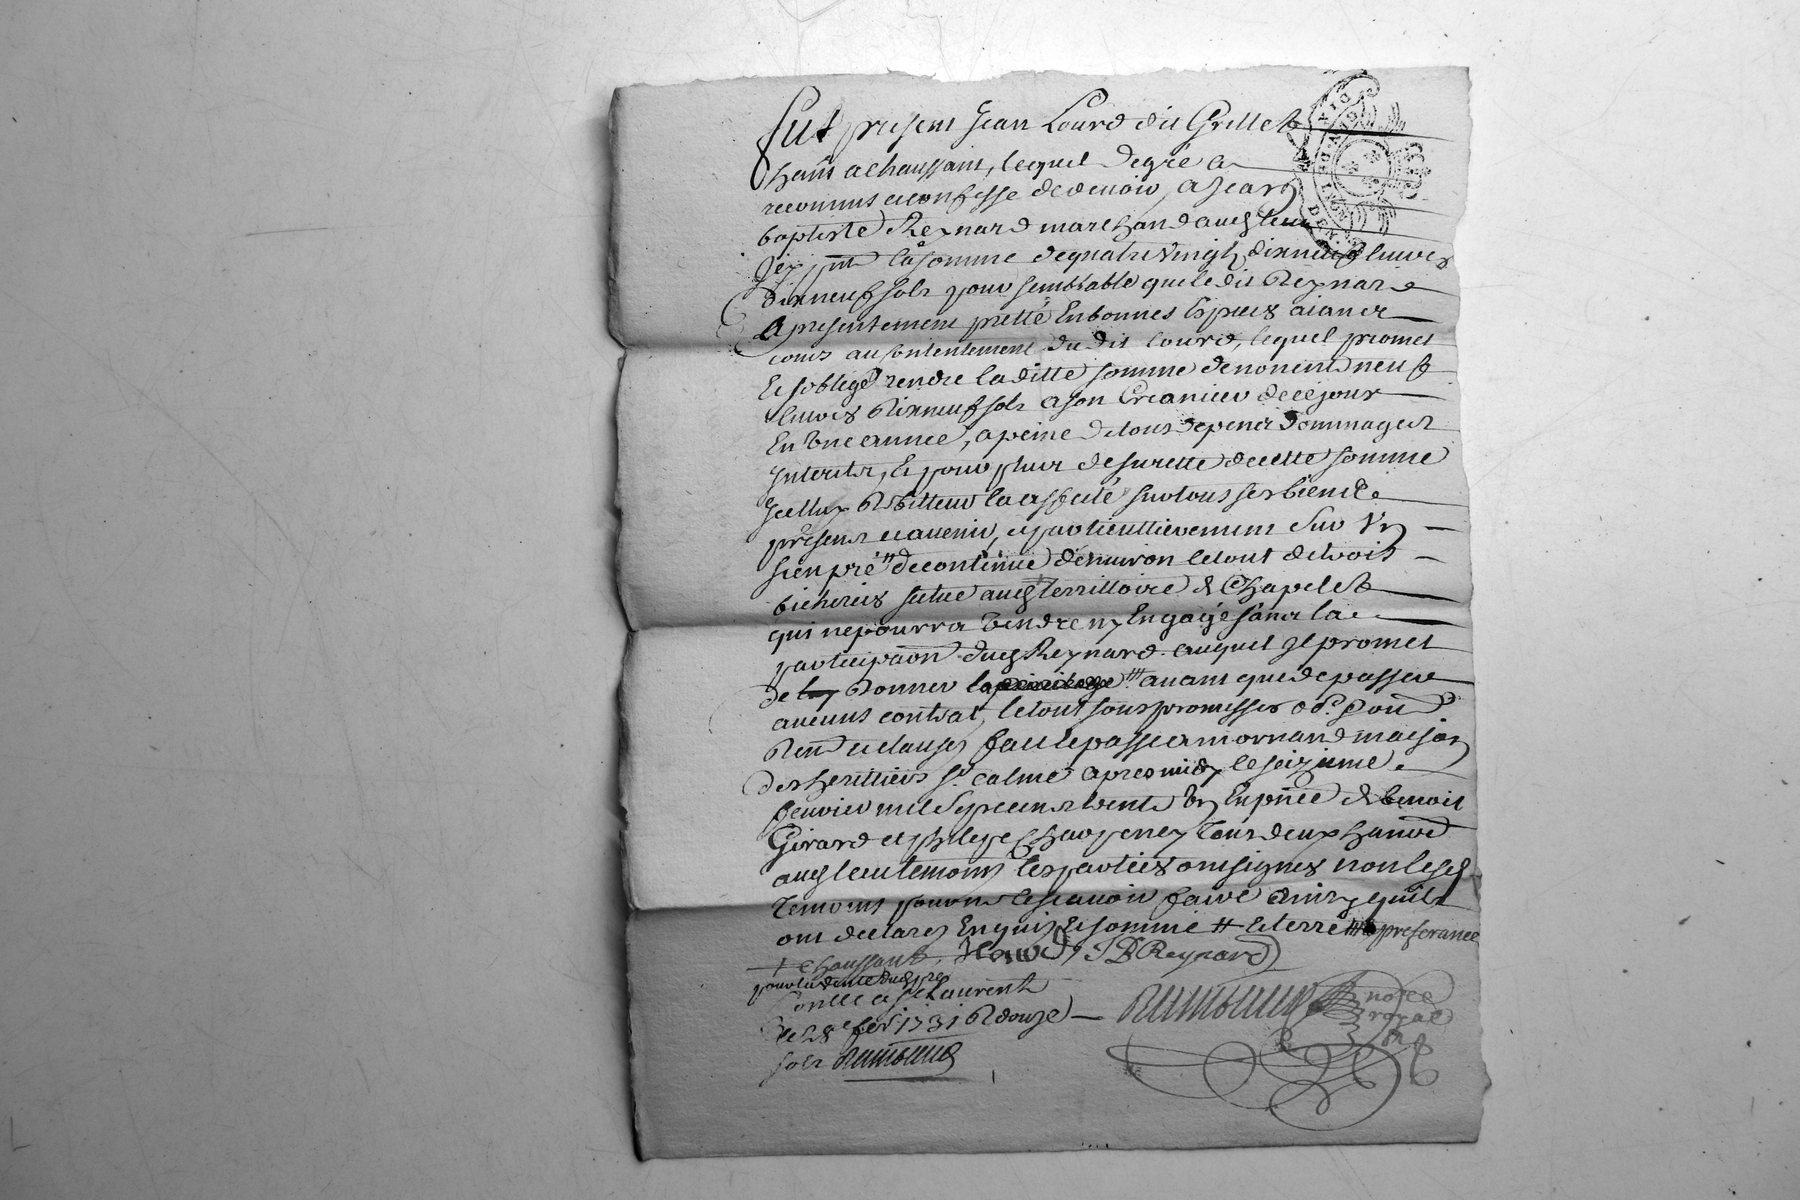 fut present Jean Lourd dit Grillet
hañt a Chaussant, lequel de gré a
reconnus et confesse de devoir, a Jean
baptiste Reynard marchand audt lieu
icy pñt la somme de quatre vingts dixneuf livres
dixneuf sols pour semblable que le dit Reynard
a presentement pretté En bonnes Especes aianct
cours au contentement du dit Lourd, lequel promet
Et soblige rendre la ditte somme de nonente neuf
livres dixneuf sols a son Creancier de ce jour
En Une année, a peine de tous depencs dommages et
Interets, Et pour plus de surette de cette somme
Icelluy debitteur la affecté sur tous ses biens
presens et avenir, et particullierement Sur Un
sien pré # de contenue d'environ le tout de trois
bicherées situé audt territtoire de Chapelet
qui ne pourra Vendre ny Engagé sans la
participaõn dudt Reynard auquel Il promet
de luy donner la ''' avant que de passer
aucuns contrat, le tout sous promesses
et clauses fait et passé a mornand maison
des herittiers sr calme apres midy le seizieme
fevrier mil sept cens trente Un En pñce de benoit
Girard et philipe Charpeney tous deux
audt lieu temoins les parties ont signés non lesdt
temoins pour ne le scavoir faire ainsy quils
ont declarez Enquis Et sommé # et terre ''' preferance
+ Chaussant, Lourd J B Reynard
pour la vente dudt pré
Conlle a st Laurent
le 28e fevr 1731 R douze
sols
nore
royal